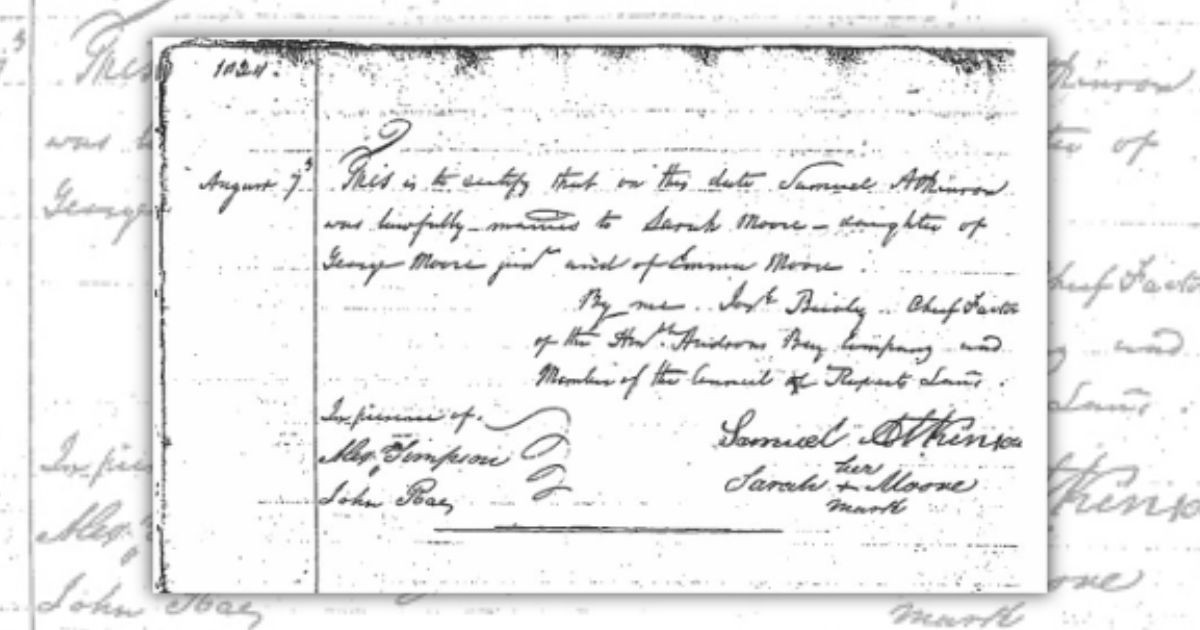 August 7
This is to certify that on this date Samuel Atkinson
was lawfully married to Sarah Moore – daughter of
George Moore junr and of Emma Moore.
By me .. Josh Beioly .. Chief Factor
of the Honble Hudsons Bay Company and
Member of the Council of Ruperts Land.
In presence of.
Alexr Simpson
John Rae
Samuel Atkinson
her
Sarah + Moore
mark